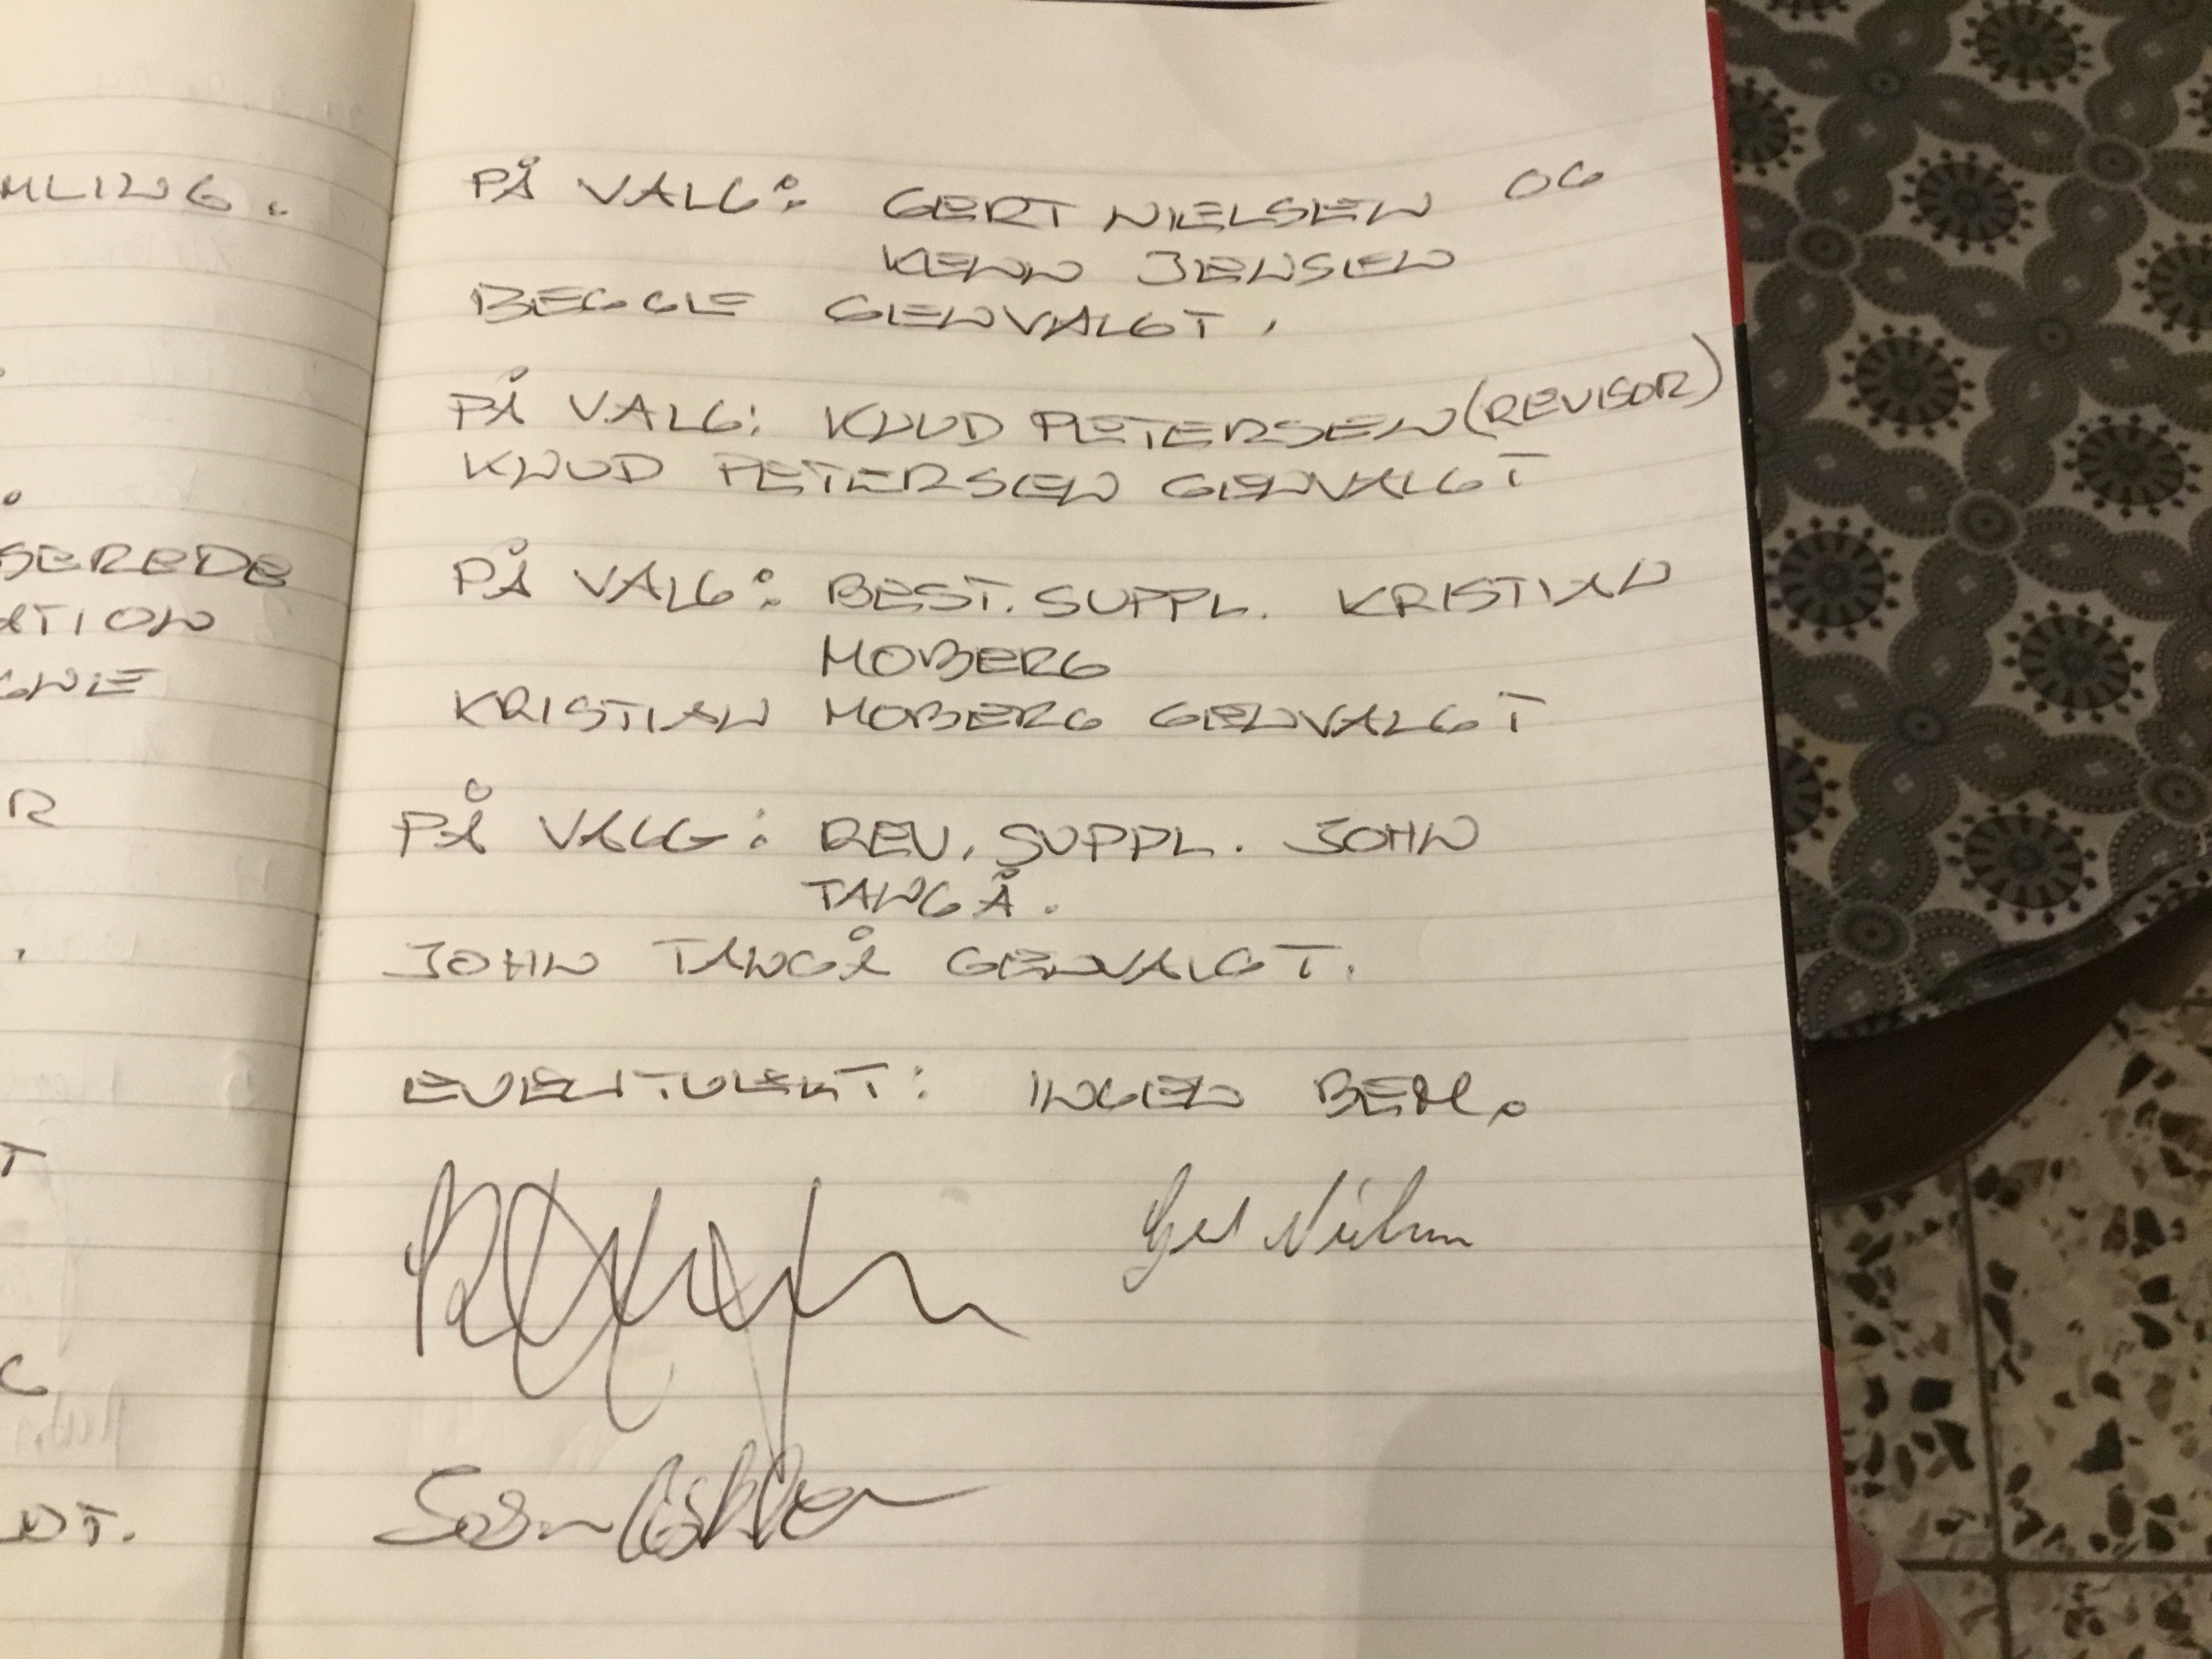 MLING.
SEREDE
ATION
GNE
R
T
DT.
PÅ VALG: GERT NIELSEN OG
KENN JENSEN
BEGGE GENVALGT.
PÅ VALG: KNUD PETERSEN (REVISOR)
KNUD PETERSEN GENVALGT
PÅ VALG: BEST. SUPPL. KRISTIAN
MOBERG
KRISTIAN MOBERG GENVALGT
PÅ VALG: REV. SUPPL. JOHN
TANGÅ.
JOHN TANGÅ GENVALGT.
EVENTUELT: INGEN BEM.
Gert Nielsen